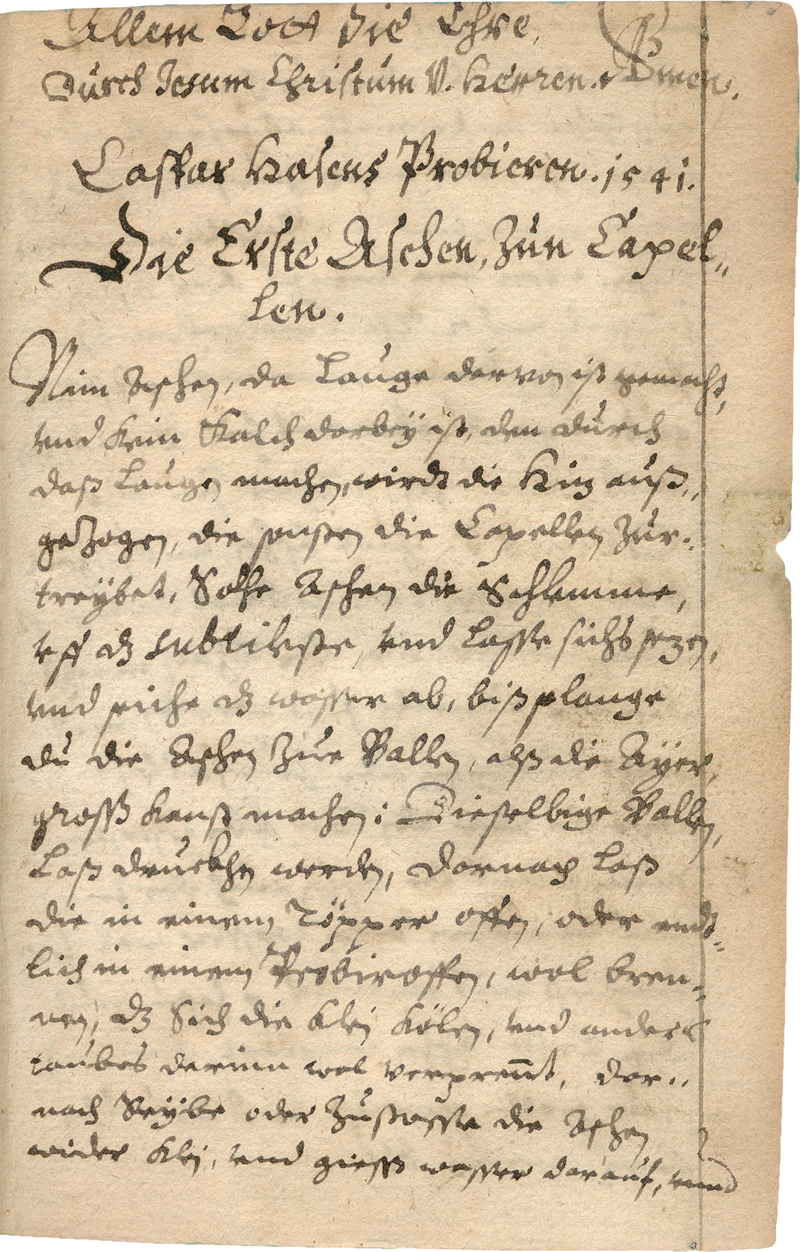 Allem Gott die Ehre,
Durch Jesum Christum V. Herren. Amen.
Caspar Hasens Probieren. 1541.
Die Erste Aschen, Zun Capel„
len.
Nim Aschen, da Lauge darvon ist gemacht,
vnd kein Kalch darbey ist, den durch
daß Laugen machen, wirdt die Hitz auß„
geZogen, die sonsten die Capellen Zur„
treybet, Solche Aschen die Schlemme,
vff dz subtileste, vnd lasse sichs sezen,
vnd seihe dz wasser ab, biß solange
du die Aschen Zue Ballen, alß die Ayer,
groß kanst machen: Dieselbige Ballen,
Laß druckhen werden, Darnach Laß
die in einem Töpper offen, oder endt„
lich in einem Probiroffen, wol bren„
nen, dz Sich die klein Kölen, vnd anders
taubes darinn wol verprennt, dar„
nach Reybe oder Zustosse die Aschen
wider klein, vnd giess wasser darauf, vnnd